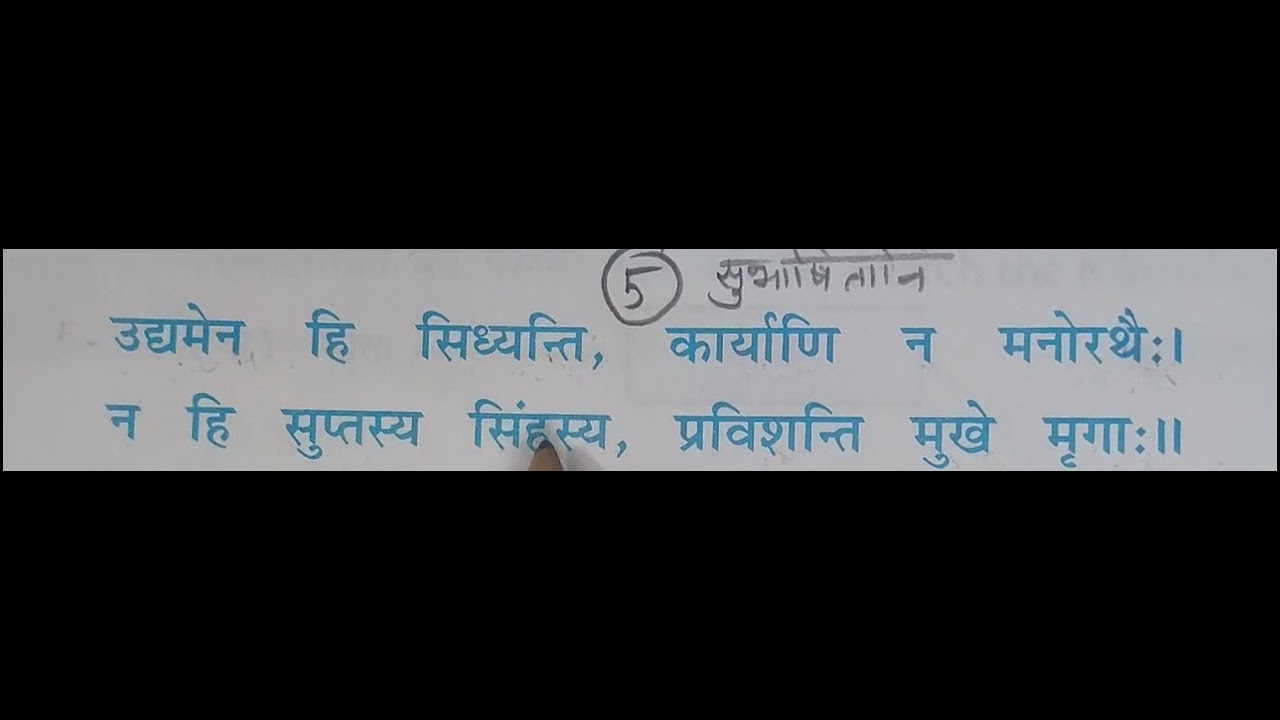 5 सुभाषितानि
उद्यमेन हि सिध्यन्ति, कार्याणि न मनोरथैः।
न हि सुप्तस्य सिंहस्य, प्रविशन्ति मुखे मृगाः॥